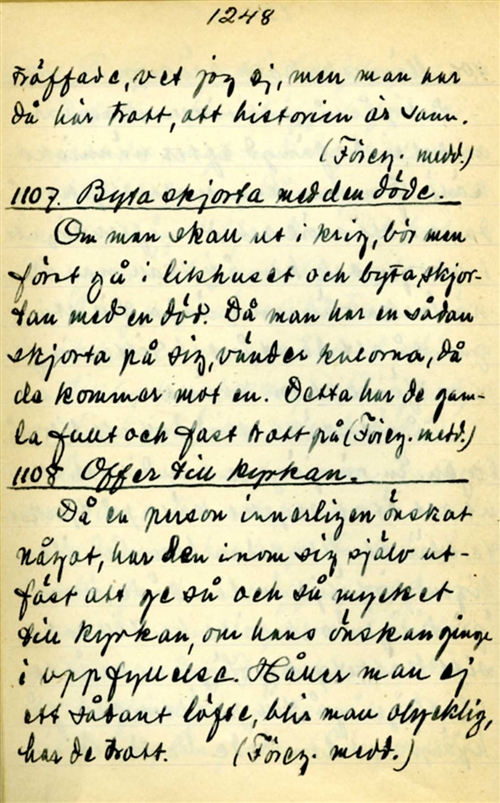 1248
träffade, vet jag ej, men man har
då här trott, att historien är sann.
(Föreg. medd.)
1107. Byta skjorta med den döde.
Om man skall ut i krig, bör man
först gå i likhuset och byta skjor-
tan med en död. Då man har en sådan
skjorta på sig, vänder kulorna, då
de kommer mot en. Detta har de gam-
la fullt och fast trott på (Föreg. medd.)
1108 Offer till kyrkan.
Då en person innerligen önskat
något, har den inom sig själv ut-
fäst att ge så och så mycket
till kyrkan, om hans önskan ginge
i uppfyllelse. Håller man ej
ett sådant löfte, blir man olycklig,
har de trott. (Föreg. medd.)